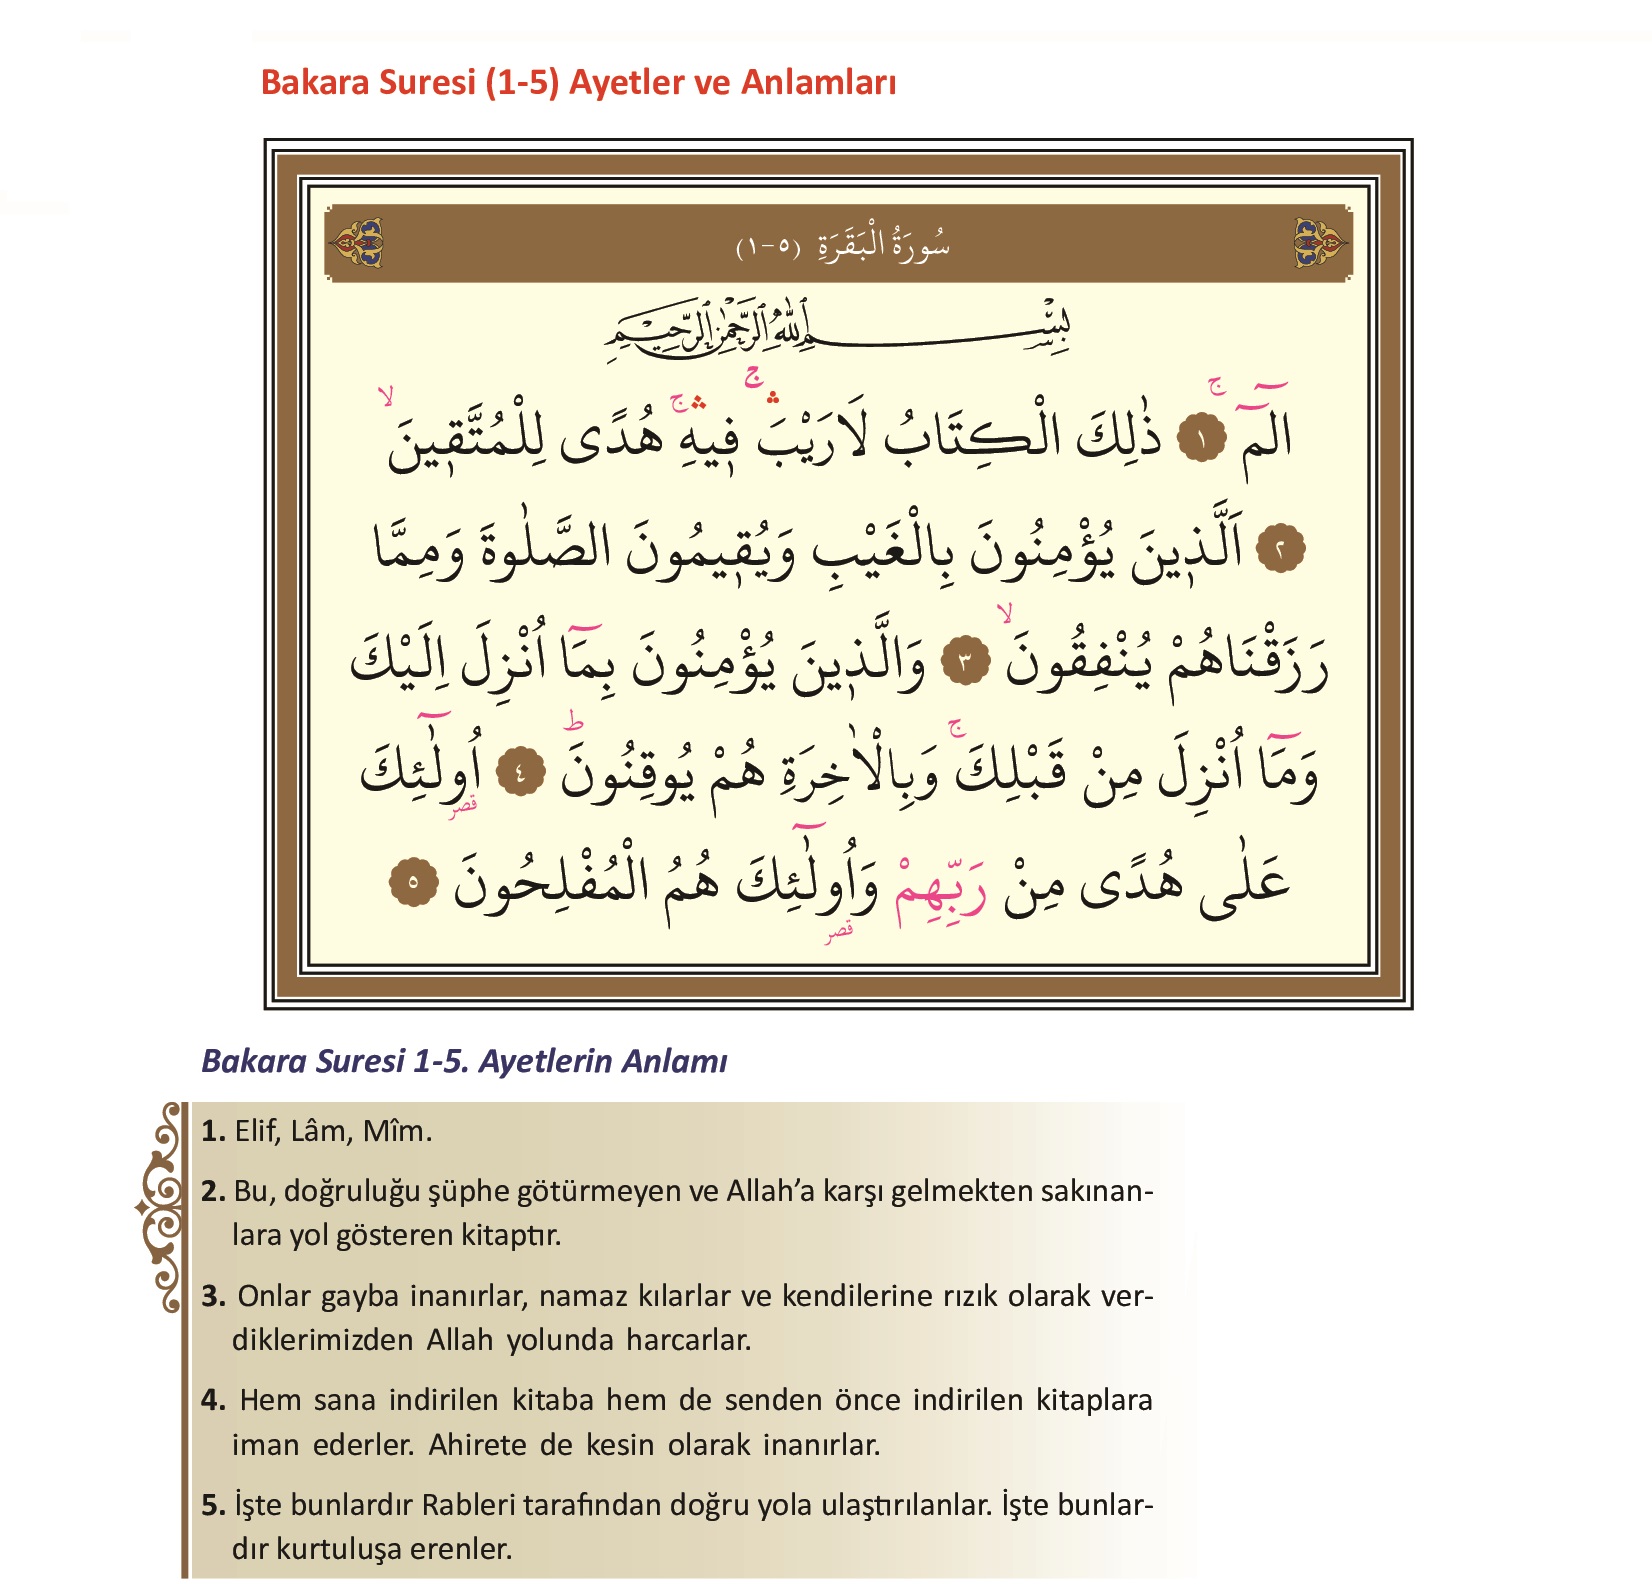 Bakara Suresi (1-5) Ayetler ve Anlamları
سُورَةُ الْبَقَرَةِ (١-٥)
بِسْمِ اللّٰهِ الرَّحْمٰنِ الرَّحِيمِ
الٓمٓ ۚ ﴿١﴾ ذٰلِكَ الْكِتَابُ لَا رَيْبَ ۚۛ فِيهِ ۚۛ هُدًى لِلْمُتَّقِينَ ۙ
﴿٢﴾ اَلَّذِينَ يُؤْمِنُونَ بِالْغَيْبِ وَيُقِيمُونَ الصَّلٰوةَ وَمِمَّا
رَزَقْنَاهُمْ يُنْفِقُونَ ۙ ﴿٣﴾ وَالَّذِينَ يُؤْمِنُونَ بِمَٓا اُنْزِلَ اِلَيْكَ
وَمَٓا اُنْزِلَ مِنْ قَبْلِكَ ۚ وَبِالْاٰخِرَةِ هُمْ يُوقِنُونَ ؕ ﴿٤﴾ اُولٰٓئِكَ
قصر
عَلٰى هُدًى مِنْ رَبِّهِمْ وَاُولٰٓئِكَ هُمُ الْمُفْلِحُونَ ﴿٥﴾
قصر
Bakara Suresi 1-5. Ayetlerin Anlamı
1. Elif, Lâm, Mîm.
2. Bu, doğruluğu şüphe götürmeyen ve Allah’a karşı gelmekten sakınan-
lara yol gösteren kitaptır.
3. Onlar gayba inanırlar, namaz kılarlar ve kendilerine rızık olarak ver-
diklerimizden Allah yolunda harcarlar.
4. Hem sana indirilen kitaba hem de senden önce indirilen kitaplara
iman ederler. Ahirete de kesin olarak inanırlar.
5. İşte bunlardır Rableri tarafından doğru yola ulaştırılanlar. İşte bunlar-
dır kurtuluşa erenler.